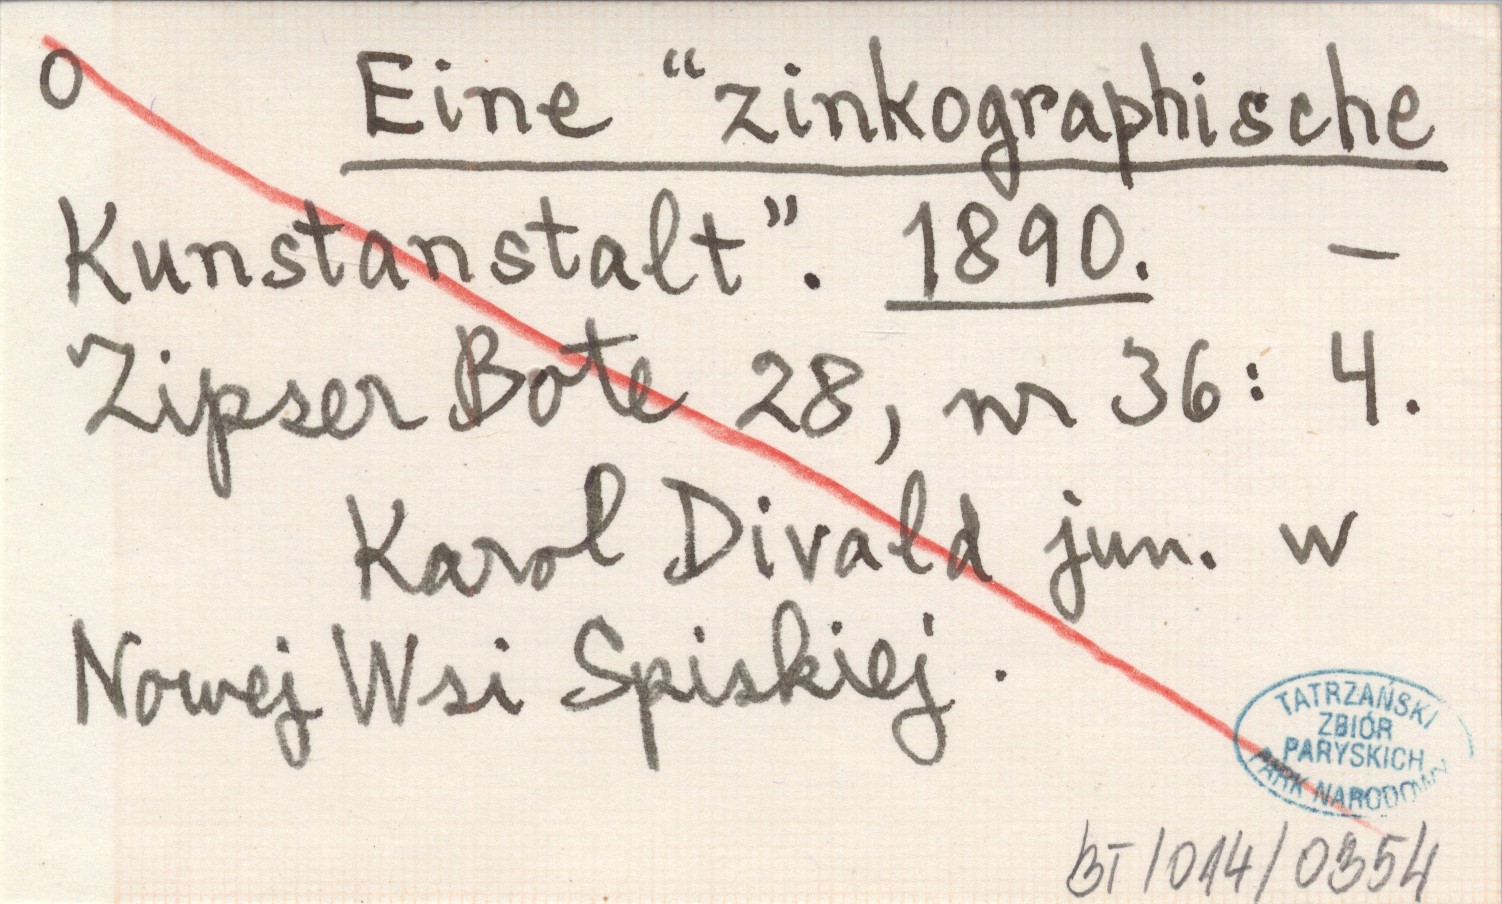 o Eine “zinkographische
Kunstanstalt”. 1890. –
Zipser Bote 28, nr 36: 4.
Karol Divald jun. w
Nowej Wsi Spiskiej.
TATRZAŃSKI
ZBIÓR
PARYSKICH
PARK NARODOWY
BT/014/0354